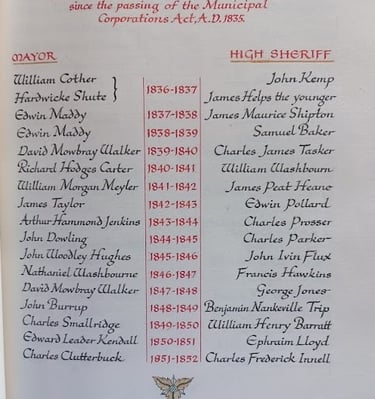 since the passing of the Municipal
Corporations Act, A.D. 1835.
MAYOR HIGH SHERIFF
William Cother John Kemp
Hardwicke Shute } 1836-1837 James Helps the younger
Edwin Maddy 1837-1838 James Maurice Shipton
Edwin Maddy 1838-1839 Samuel Baker
David Mowbray Walker 1839-1840 Charles James Tasker
Richard Hodges Carter 1840-1841 William Washbourn
William Morgan Meyler 1841-1842 James Peat Heane
James Taylor 1842-1843 Edwin Pollard
Arthur Hammond Jenkins 1843-1844 Charles Prosser
John Dowling 1844-1845 Charles Parker
John Woodley Hughes 1845-1846 John Ivin Flux
Nathaniel Washbourne 1846-1847 Francis Hawkins
David Mowbray Walker 1847-1848 George Jones
John Burrup 1848-1849 Benjamin Nankeville Trip
Charles Smallridge 1849-1850 William Henry Barratt
Edward Leader Kendall 1850-1851 Ephraim Lloyd
Charles Clutterbuck 1851-1852 Charles Frederick Innell